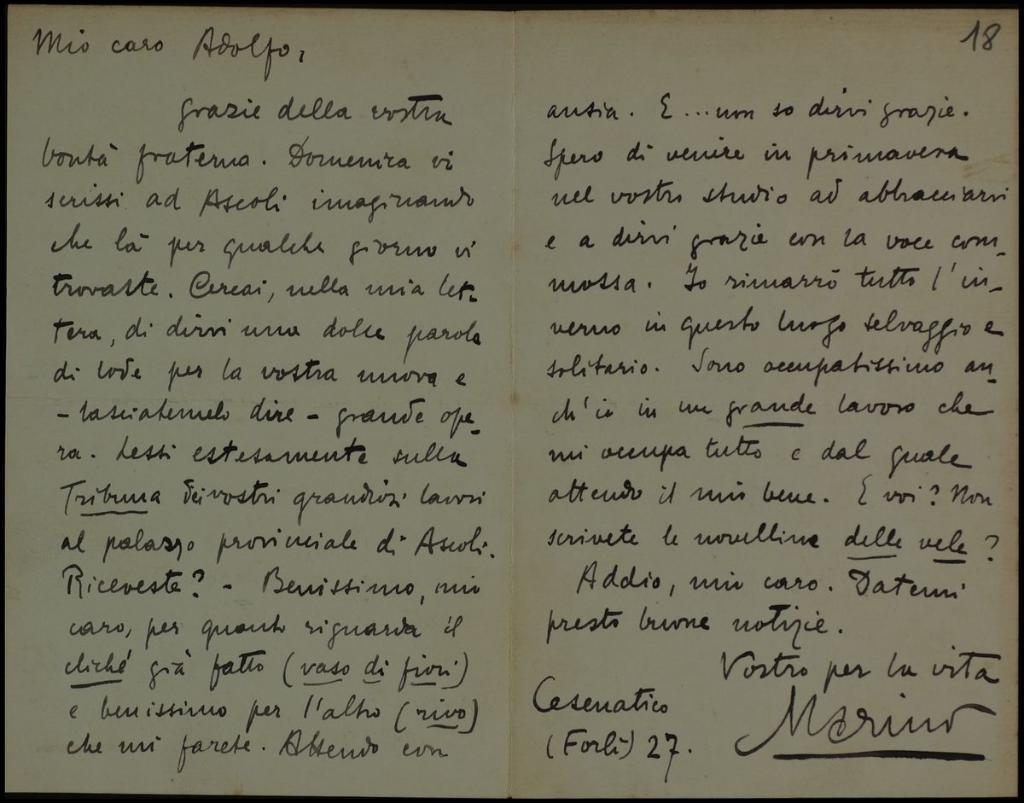 Mio caro Adolfo,
grazie della vostra
bontà fraterna. Domenica vi
scrissi ad Ascoli imaginando
che là per qualche giorno vi
trovaste. Cercai, nella mia let-
tera, di dirvi una dolce parola
di lode per la vostra nuova e
- lasciatemelo dire - grande ope-
ra. Lessi estesamente sulla
Tribuna dei vostri grandiosi lavori
al palazzo provinciale di Ascoli.
Riceveste? - Benissimo, mio
caro, per quanto riguarda il
cliché già fatto (vaso di fiori)
e benissimo per l'altro (rivo)
che mi farete. Attendo con
18
ansia. E ... non so dirvi grazie.
Spero di venire in primavera
nel vostro studio ad abbracciarvi
e a dirvi grazie con la voce com-
mossa. Io rimarrò tutto l'in-
verno in questo luogo selvaggio e
solitario. Sono occupatissimo an-
ch'io in un grande lavoro che
mi occupa tutto e dal quale
attendo il mio bene. E voi? Non
scrivete le novelline delle vele?
Addio, mio caro. Datemi
presto buone notizie.
Vostro per la vita
Marino
Cesenatico
(Forlì) 27.